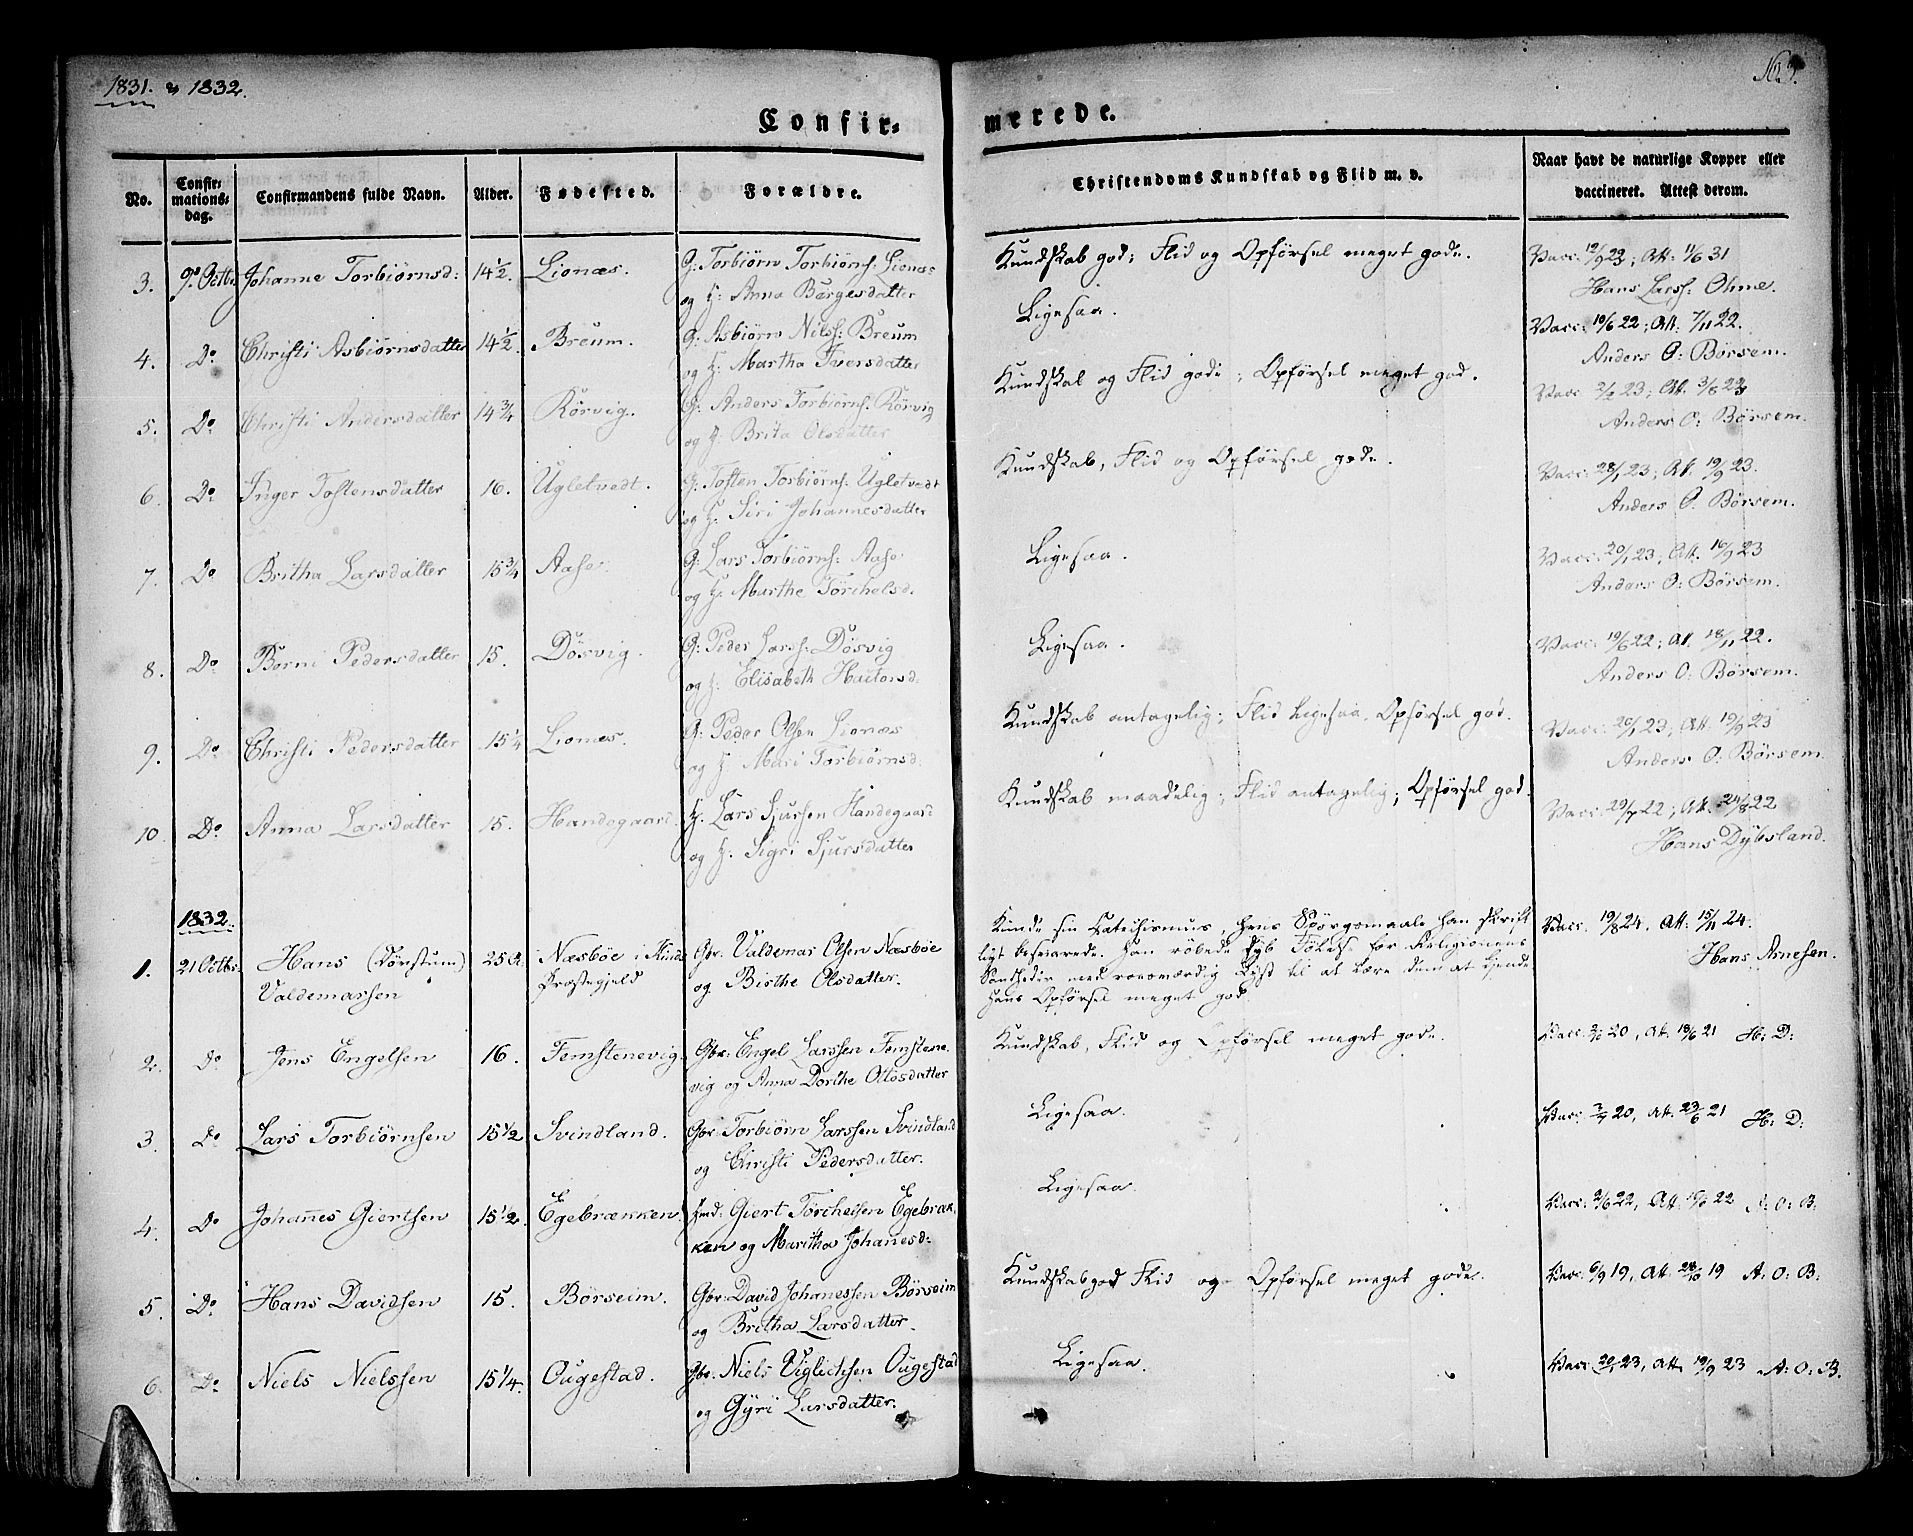 1831. & 1832.
163.
Confir-
merede.
No.
Confir-
mations-
dag.
Confirmandens fulde Navn.
Alder.
Fødested.
Forældre.
Christendoms Kundskab og Flid m. v.
Naar havt de naturlige Kopper eller
vaccineret. Attest derom.
3. 9de Octbr Johanne Torbiørnsd: 14 1/2. Lionæs. G: Torbiørn Torbiørns: Lionæs
og H: Anna Børgesdatter
Kundskab god; Flid og Opførsel meget gode. Vacc: 19/9 23; Att: 11/6 31
Hans Larss: Ohme.
4. Do Christi Asbiørnsdatter 14 1/2. Breum. G: Asbiørn Nilss: Breum
og H: Martha Iversdatter
Ligesaa. Vacc: 10/6 22; Att: 7/11 22.
Anders O: Børsem.
5. Do Christi Andersdatter 14 3/4 Rørvig. G: Anders Torbiørns: Rørvig
og H: Brita Olsdatter
Kundskab og Flid gode; Opførsel meget god. Vacc: 23; Att. 3/8 23
Anders O: Børsem.
6. Do Inger Tostensdatter 16. Ugletvedt. G: Tosten Torbiørns: Ugletvedt
og H: Siri Johannesdatter
Kundskab, Flid og Opførsel gode. Vacc: 28/1 23; At. 19/9 23.
Anders O. Børsem.
7. Do Britha Larsdatter 15 3/4 Aase. G: Lars Torbiørns: Aase
og H: Marthe Törchelsd.
Ligesaa. Vacc: 20/1 23; Att. 19/9 23
Anders O: Børsem.
8. Do Børni Pedersdatter 15. Døsvig. G: Peder Larss: Døsvig
og H: Elisabeth
Ligesaa. Vacc: 19/6 22; At. 18/11 22.
Anders O: Børsem.
9. Do Christi Pedersdatter 15 1/4 Lionæs. G: Peder Olsen Lionæs
og H: Mari Torbiørnsd.
Kundskab antagelig; Flid ligesaa, Opførsel god. Vacc: 20/1 23; Att. 19/9 23
Anders O: Børsem.
10. Do Anna Larsdatter 15. Handegaard. H. Lars Sjursen Handegaard
og H: Sigri Sjursdatter
Kundskab maadelig; Flid antagelig; Opførsel god. Vacc: 29/7 22; Att. 24/8 22
Hans Dybsland.
1832.
1. 21 Octbr. Hans (Dövstum) 25 A. Næsbøe i Kinds Gbr. Valdemar Olsen Næsbøe
Valdemarsen Præstegjeld og Birthe Olsdatter.
Kunde sin Catechismus, hvis Spörgsmaale han skrift
ligt besvarede. Han röbede Dyb Følelse for Religionens
Sandheder med roesværdig Lyst til at lære dem at kjende
Hans Opførsel meget god.
Vacc. 19/8 24. Att. 15/11 24.
Hans Arnesen.
2. Do Jens Engelsen 16. Femstenevig. Gbr. Engel Larssen Femstene
vig og Anna Dorthe Ottosdatter
Kundskab, Flid og Opførsel meget gode. Vacc. 20, At. 18/6 21 H: D:
3. Do Lars Torbiørnsen 15 1/2 Svindland. Gbr. Torbiørn Larssen Svindland
og Christi Pedersdatter.
Ligesaa. Vacc: 20, At. 23/6 21 H: D:
4. Do Johannes Giertsen 15 1/2. Egebrækken. Hmd: Giert Törchelsen Egebræk
ken og Maritha Johanesd:
Ligesaa. Vacc: 2/6 22, Att. 22 A: O: B.
5. Do Hans Davidsen 15. Børseim. Gbr: David Johanessen Børseim
og Britha Larsdatter.
Kundskab god Flid og Opførsel meget gode. Vacc. 6/9 19, Att. 28/10 19 A. O: B:
6. Do Niels Nielssen 15 1/4. Ougestad. Gbr. Niels Viglichsen Ougestad
og Gyri Larsdatter.
Ligesaa. Vacc 20/1 23, Att 19/9 23 A: O: B.